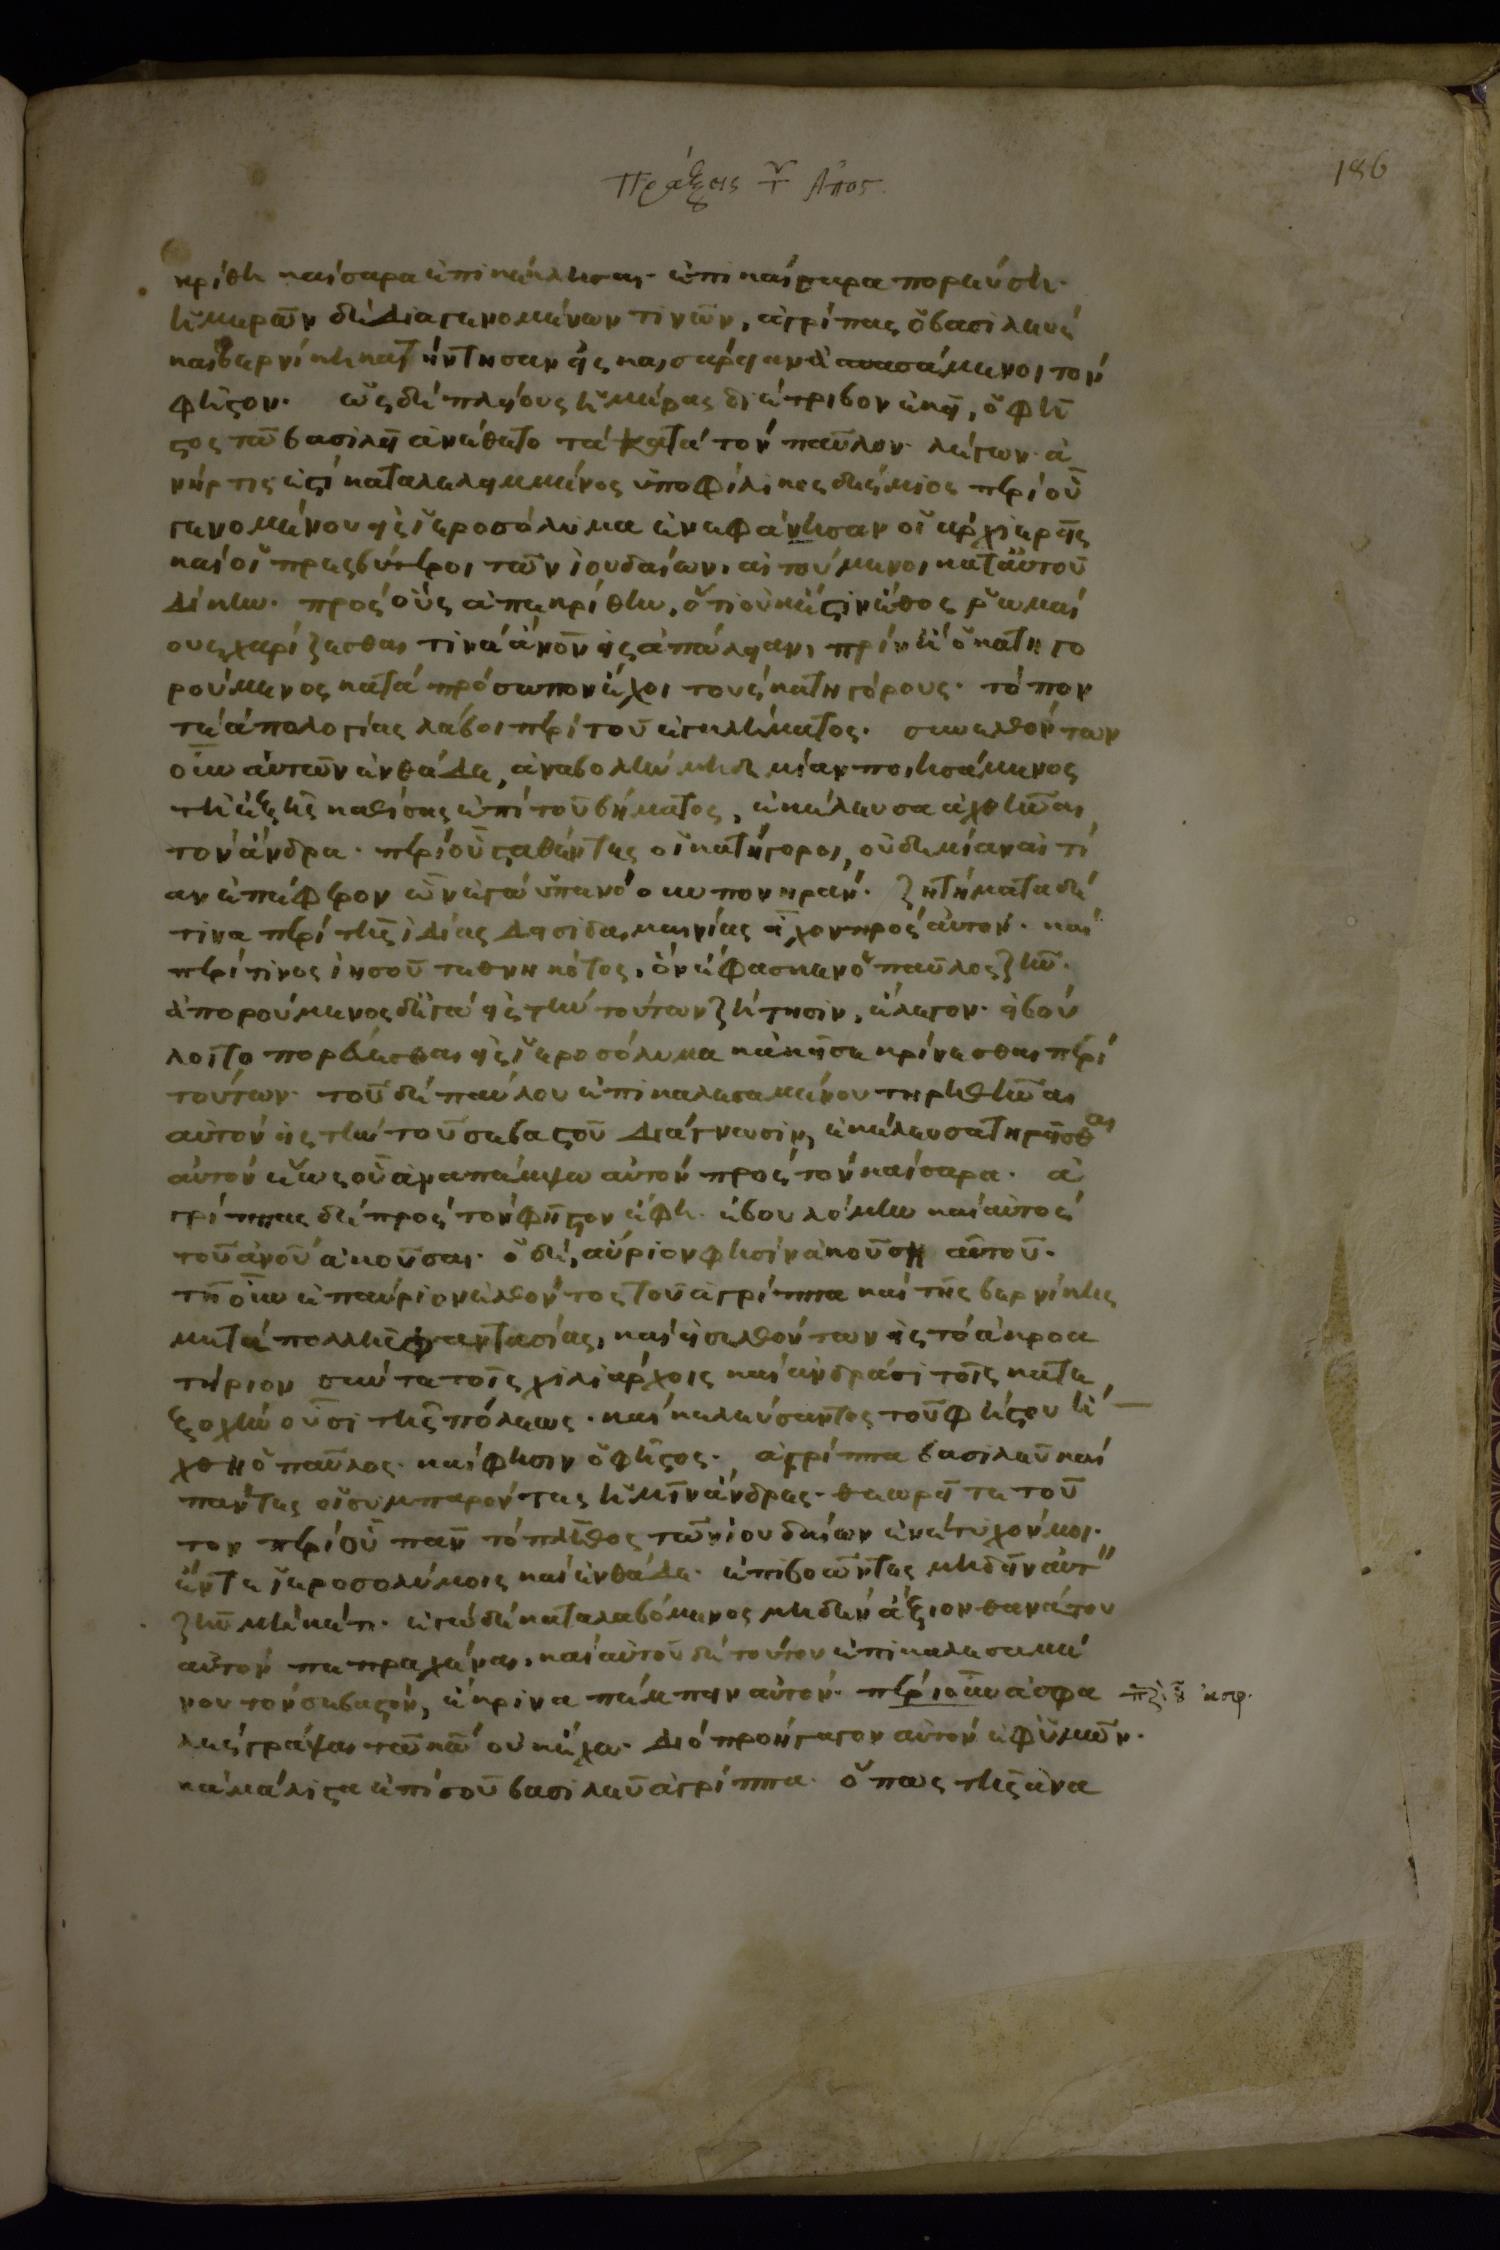 Πράξεις τ Απος
186
κρίθη καίσαρα ἐπικέκλησαι· ἐπι καίσαρα πορεύση·
ἡμερῶν δὲ διαγενομένων τινῶν, ἀγρίπας ὁ βασιλεὺς
καὶ βερνίκη κατήντησαν εἰς καισάρειαν ἀσπασάμενοι τὸν
φῆστον· ὡς δὲ πλείους ἡμέρας διέτριβον ἐκεῖ, ὁ φῆ
στος τῶ βασιλεῖ ἀνέθετο τὰ κατὰ τὸν παῦλον· λέγων· ἀ
νήρ τις ἐστὶ καταλελειμμένος ὑπο φίλικος δέσμιος περὶ οὗ
γενομένου εἰς ἱεροσόλυμα ἐνεφάνησαν οἱ ἀρχιερεῖς
καὶ οἱ πρεσβύτεροι τῶν ἰουδαίων, αἰτούμενοι κατ αὐτοῦ
δίκην· πρὸς οὓς ἀπεκρίθην, ὅτι οὐκ ἔστιν ἔθος ῥωμαί
οις χαρίζεσθαι τινὰ ἄνον εἰς ἀπώλειαν, πρὶν ἢ ὁ κατηγο
ρούμενος κατὰ πρόσωπον ἔχοι τοὺς κατηγόρους· τόπον
τὲ ἀπολογίας λάβοι περὶ τοῦ ἐγκλήματος· συνελθόντων
οὖν αὐτῶν ἐνθάδε, ἀναβολὴν μηδεμίαν ποιησάμενος
τῆ ἑξῆς καθίσας ἐπὶ τοῦ βήματος, ἐκέλευσα ἀχθῆναι
τὸν ἄνδρα· περὶ οὗ σταθέντες οἱ κατήγοροι, οὐδεμίαν αἰτί
αν ἐπέφερον ὧν ἐγὼ ὑπενόουν πονηράν· ζητήματα δὲ
τινα περὶ τῆς ἰδίας δεισιδαιμονίας εἶχον πρὸς αὐτόν· καὶ
περί τινος ἰησοῦ τεθνηκότος, ὃν ἔφασκεν ὁ παῦλος ζῆν·
ἀπορούμενος δὲ ἐγὼ εἰς τὴν τούτων ζήτησιν, ἔλεγον· εἰ βού
λοιτο πορεύεσθαι εἰς ἱεροσόλυμα κἀκεῖσε κρίνεσθαι περὶ
τούτων· τοῦ δὲ παύλου ἐπικαλεσαμένου τηρηθῆναι
αὐτὸν εἰς τὴν τοῦ σεβαστοῦ διάγνωσιν, ἐκέλευσα τηρεῖσθαι
αὐτὸν ἕως οὗ ἀναπέμψω αὐτὸν πρὸς τὸν καίσαρα· ἀ
γρίππας δὲ πρὸς τὸν φῆστον ἔφη· ἐβουλόμην καὶ αὐτὸς
τοῦ ἀνοῦ ἀκοῦσαι· ὁ δὲ, αὔριον φησὶν ἀκούση αὐτοῦ·
τῆ οὖν ἐπαύριον ἐλθόντος τοῦ ἀγρίππα καὶ τῆς βερνίκης
μετὰ πολλῆς φαντασίας, καὶ εἰσελθόντων εἰς τὸ ἀκροα
τήριον σύν τε τοῖς χιλιάρχοις καὶ ἀνδράσι τοῖς κατε
ξοχὴν οὖσι τῆς πόλεως· καὶ κελεύσαντος τοῦ φήστου ἤ
χθη ὁ παῦλος· καὶ φησιν ὁ φῆστος· ἀγρίππα βασιλεῦ καὶ
πάντες οἱ συμπαρόντες ἡμῖν ἄνδρες· θεωρεῖτε τοῦ
τον περὶ οὗ πᾶν τὸ πλῆθος τῶν ἰουδαίων ἐνέτυχόν μοι·
ἔν τε ἱεροσολύμοις καὶ ἐνθάδε· ἐπιβοῶντες μὴ δεῖν αὐτ
ζῆν μηκέτι· ἐγὼ δὲ καταλαβόμενος μηδὲν ἄξιον θανάτου
αὐτὸν πεπραχέναι, καὶ αὐτοῦ δὲ τούτου ἐπικαλεσαμέ
νου τὸν σεβαστὸν, ἔκρινα πέμπειν αὐτόν· περὶ οὖν ἀσφα
λὲς γράψαι τῶ κῶ οὐκ ἔχω· διὸ προήγαγον αὐτὸν ἐφ ὑμῶν·
κὰ μάλιστα ἐπὶ σοῦ βασιλεῦ ἀγρίππα· ὅπως τῆς ἀνα